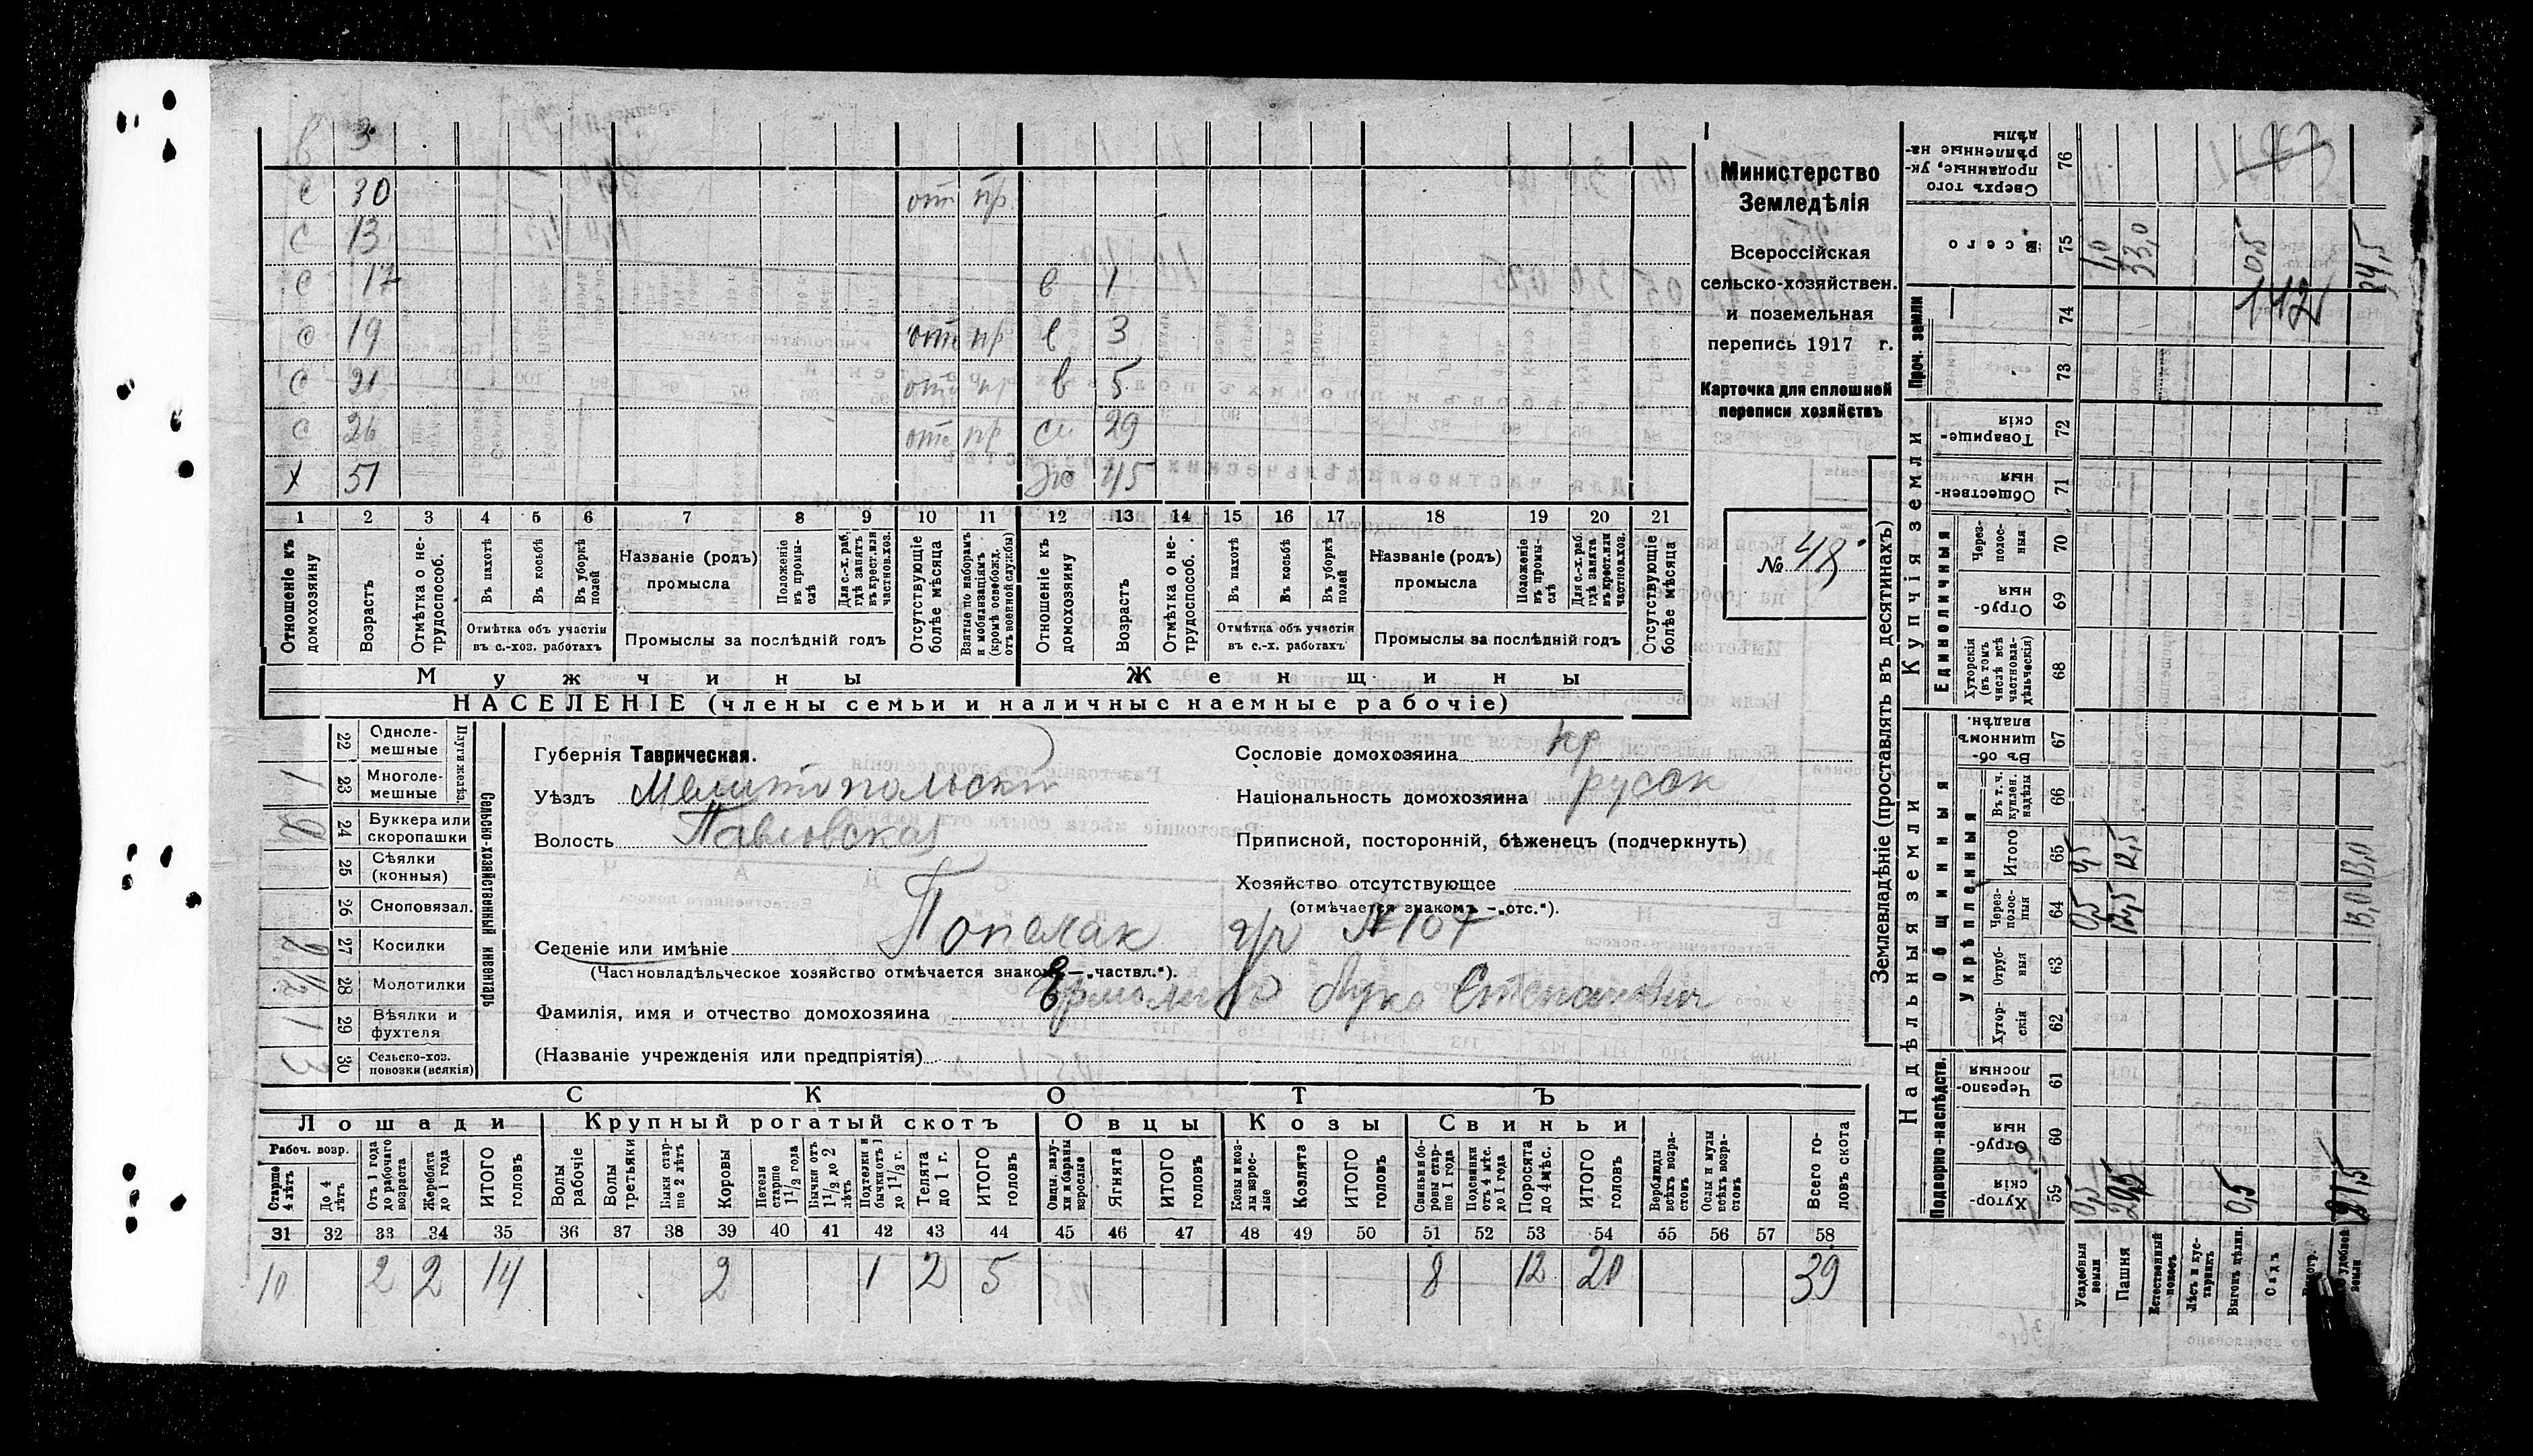 в 3
с 30 от пр
с 13
с 17 в 1
с 19 отп пр в 3
с 21 отп пр в 5
с 26 отп пр сн 29
х 51 жо 45
1 2 3 4 5 6 7 8 9 10 11 12 13 14 15 16 17 18 19 20 21
Отношеніе къ домохозяину
Возрастъ
Отмѣтка о не-трудоспособ.
Въ пахотѣ
Въ косьбѣ
Въ уборкѣ полей
Отмѣтка объ участіи въ с.-хоз. работахъ
Названіе (родъ) промысла
Положеніе въ промы-слѣ
Для с.-х. раб. гдѣ занятъ въ крест. или частнов. хоз.
Промыслы за послѣдній годъ
Отсутствующіе болѣе мѣсяца
Взятые по наборамъ и мобилизаціямъ (кромѣ освобожд. отъ военной службы)
Отношеніе къ домохозяину
Возрастъ
Отмѣтка о не-трудоспособ.
Въ пахотѣ
Въ косьбѣ
Въ уборкѣ полей
Отмѣтка объ участіи въ с.-х. работахъ
Названіе (родъ) промысла
Положеніе въ промы-слѣ
Для с.-х. раб. гдѣ занята въ крест. или частнов. хоз.
Промыслы за послѣдній годъ
Отсутствующіе болѣе мѣсяца
Мужчины Женщины
НАСЕЛЕНІЕ (члены семьи и наличныс наемные рабочіе)
Министерство
Земледѣлія
Всероссійская
сельско-хозяйствен.
и поземельная
перепись 1917 г.
Карточка для сплошней
переписи хозяйствъ
№ 48
Сельско-хозяйственный инвентарь
Плуги желѣз.
22 Одноле-мешные
1 23 Многоле-мешные
2 24 Буккера или скоропашки
25 Сѣялки (конныя)
26 Сноповязал.
2 27 Косилки
1/2 28 Молотилки
1 29 Вѣялки и фухтеля
3 30 Сельско-хоз. повозки (всякія)
Губернія Таврическая.
Уѣздъ Мелитопольскій
Волость Павловская
Селеніе или имѣніе Попелак гр №107
(Частновладѣльческое хозяйство отмѣчается знакомъ —„частвл.“).
Фамилія, имя и отчество домохозяина Ермоленко Лука Степанович
(Названіе учрежденія или предпріятія)
Сословіе домохозяина кр
Національность домохозяина русак
Приписной, посторонній, бѣженец (подчеркнуть)
Хозяйство отсутствующее
(отмѣчается знакомъ —„отс.“).
СКОТЪ
Лошади Крупный рогатый скотъ Овцы Козы Свиньи
Рабоч. возр.
Старше 4 лѣтъ
До 4 лѣтъ
Отъ 1 года до рабочаго возраста
Жеребята до 1 года
ИТОГО головъ
Волы рабочіе
Волы третьяки
Быки стар-ше 2 лѣтъ
Коровы
Нетели старше 1½ года
Бычки отъ 1½ до 2 лѣтъ
Подтелки и бычки отъ 1 до 1½ г.
Телята до 1 г.
ИТОГО головъ
Овцы, валу-хи и бараны взрослые
Ягнята
ИТОГО головъ
Козы и коз-лы взрос-лые
Козлята
ИТОГО головъ
Свиньи и бо-ровы стар-ше 1 года
Подсвинки отъ 4 мѣс. до 1 года
Поросята до 4 мѣс.
ИТОГО головъ
Верблюды всѣхъ возра-стовъ
Ослы и мулы всѣхъ возра-стовъ
Всего го-ловъ скота
31 32 33 34 35 36 37 38 39 40 41 42 43 44 45 46 47 48 49 50 51 52 53 54 55 56 57 58
10 2 2 14 2 1 2 5 8 12 20 39
Землевладѣніе (проставлять въ десятинахъ)
Надѣльныя земли
Купчія земли
Проч. земли
Подворно-наслѣдств.
Общинныя
Укрѣпленныя
Единоличныя
Сверхъ того проданные, ук-рѣпленные на-дѣлы 76
Всего 75 1,0 33,0 0,5 34,5
74 142
73
Товарище-скія 72
Обществен-ныя 71
Через-полос-ныя 70
Отруб-ныя 69
Хуторскія (въ томъ числѣ всѣ частновла-дѣльческія) 68
Въ об-щинномъ владѣн. 67
Въ т. ч. куплен. надѣлы 66
Итого 65 0,5 12,5 13,0
Через-полос-ныя 64 0,5 12,5 13,0
Отруб-ныя 63
Хутор-скія 62
Черезпо-лосныя 61
Отруб-ныя 60
Хутор-скія 59 0,5 20,5 0,5 21,5
Усадебныя земли
Пашня
Естественный покосъ
Лѣсъ и кус-тарникъ
Выгонъ цѣлин.
Садъ
удобной земли